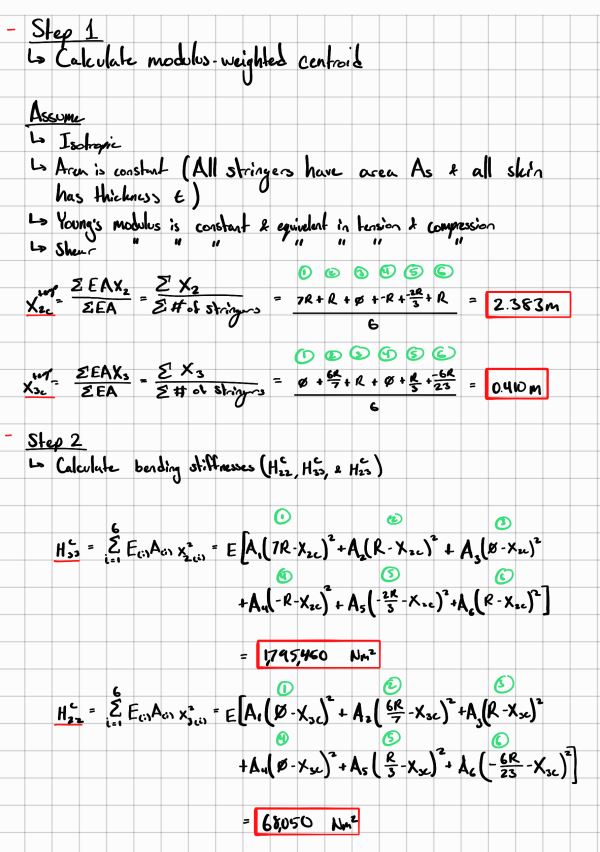 - Step 1
↳ Calculate modulus-weighted centroid
Assume
↳ Isotropic
↳ Area is constant (All stringers have area As & all skin
has thickness t)
↳ Young's modulus is constant & equivalent in tension & compression
↳ Shear " " " " " " "
① ② ③ ④ ⑤ ⑥
X₂c = ΣEAX₂ / ΣEA = ΣX₂ / Σ# of stringers = (7R + R + ∅ + -R + -2R/3 + R) / 6 = 2.383m
① ② ③ ④ ⑤ ⑥
X₃c = ΣEAX₃ / ΣEA = ΣX₃ / Σ# of stringers = (∅ + 6R/7 + R + ∅ + R/3 + -6R/23) / 6 = 0.410m
- Step 2
↳ Calculate bending stiffnesses (H₂₂ᶜ, H₃₃ᶜ, & H₂₃ᶜ)
① ② ③
H₃₃ᶜ = Σ⁶ᵢ₌₁ E₍ᵢ₎A₍ᵢ₎ x²₂₍ᵢ₎ = E[A₁(7R-X₂c)² + A₂(R-X₂c)² + A₃(∅-X₂c)²
④ ⑤ ⑥
+A₄(-R-X₂c)² + A₅(-2R/3-X₂c)² + A₆(R-X₂c)²]
= 1,795,460 Nm²
① ② ③
H₂₂ᶜ = Σ⁶ᵢ₌₁ E₍ᵢ₎A₍ᵢ₎ x²₃₍ᵢ₎ = E[A₁(∅-X₃c)² + A₂(6R/7-X₃c)² + A₃(R-X₃c)²
④ ⑤ ⑥
+A₄(∅-X₃c)² + A₅(R/3-X₃c)² + A₆(-6R/23-X₃c)²]
= 68,050 Nm²